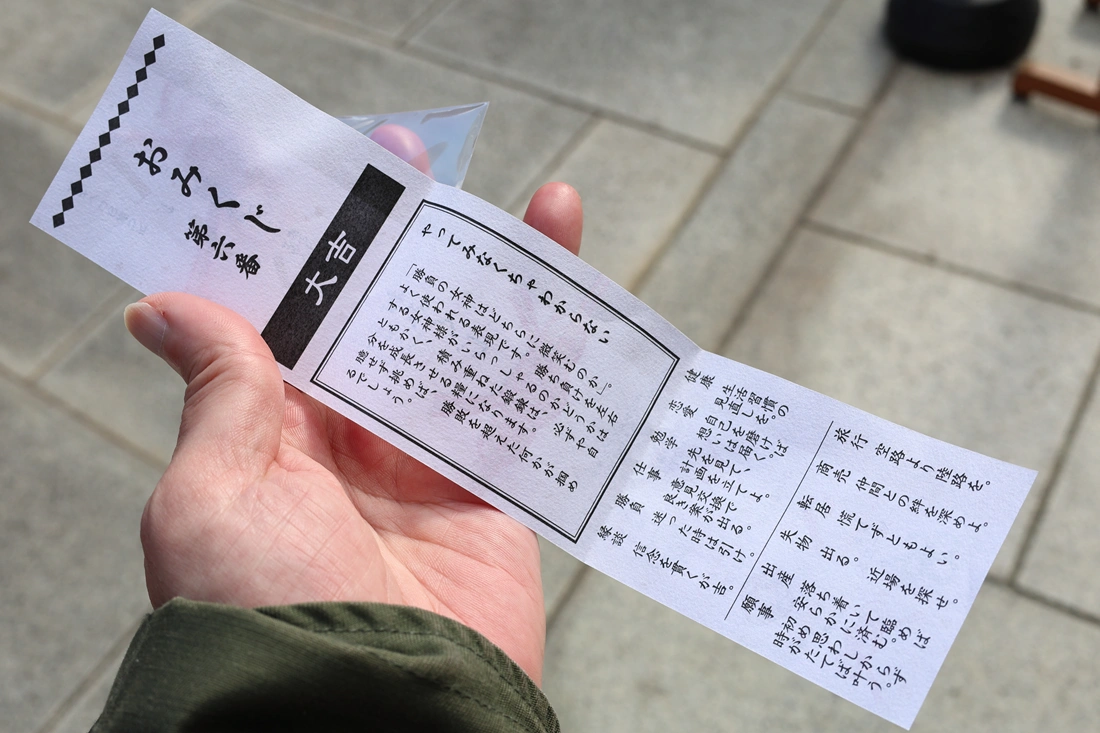 おみくじ
第六番
大吉
やってみなくちゃわからない
「勝負の女神はどちらに微笑むのか」。
よく使われる表現です。勝ち負けを左右
する女神様がいらっしゃるのかどうかは
ともかく、積み重ねた鍛錬は、必ずや自
分を成長させる糧になります。
臆せず挑めば、勝敗を超えた何かが掴め
るでしょう。
健康 生活習慣の
見直しを。
恋愛 自己を磨けば
想いは届く。
勉学 先を見て、
計画を立てよ。
仕事 意見交換で
良き案が出る。
勝負 迷った時は引け。
縁談 信念を貫くが吉。
旅行 空路より陸路を。
商売 仲間との絆を深めよ。
転居 慌てずともよい。
失物 出る。近場を探せ。
出産 落ち着いて臨めば
安らかに済む。
願事 初め思わしからず
時がたてば叶う。